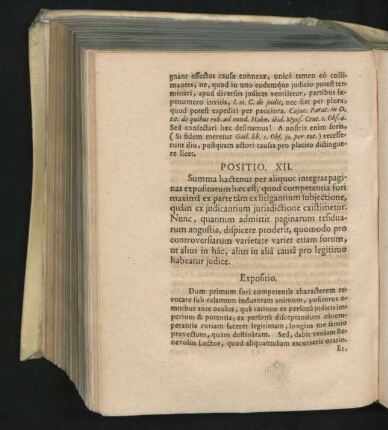 gnant effectus causæ connexæ, unicè tamen eò colli-
mantes, ne, quod in uno eodemque judicio potest ter-
minari, apud diversos judices ventiletur, partibus sæ-
penumero invitis, l. 10. C. de judic. nec fiat per plura,
quod potest expediri per pauciora. Cujac. Parat. in D.
tit. de quibus reb. ad eund. Hahn. ibid. Myns. Cent. 1. Obs. 4.
Sed consectari hæc desinamus! A nostris enim foris,
( Si fidem meretur Gail. lib. 1. Obs. 32. per tot. ) recesse-
runt diu, postquam actori causas pro placito distingue-
re licet.
POSITIO. XII.
Summa hactenus per aliquot integras pagi-
nas expositorum hæc est, quod competentia fori
maximâ ex parte tàm ex litigantium subjectione,
quàm ex judicantium jurisdictione existimetur.
Nunc, quantum admittit paginarum residua-
rum angustia, dispicere proderit, quomodo pro
controversiarum varietate variet etiam forum,
ut alius in hâc, alius in aliâ causâ pro legitimo
habeatur judice.
Expositio.
Dum primum fori competentis characterem re-
vocare sub calamum industriam animum, posituros o-
mnibus ante oculos, quâ ratione ex personâ judicis im-
perium & potentia, ex personâ disceptandium obtem-
perantia curiam faceret legitimam, longius me sentio
provectum, quàm destinâram. Sed, dabis veniam Be-
nevolus Lector, quod aliquantulum excurrerit oratio.
Et,